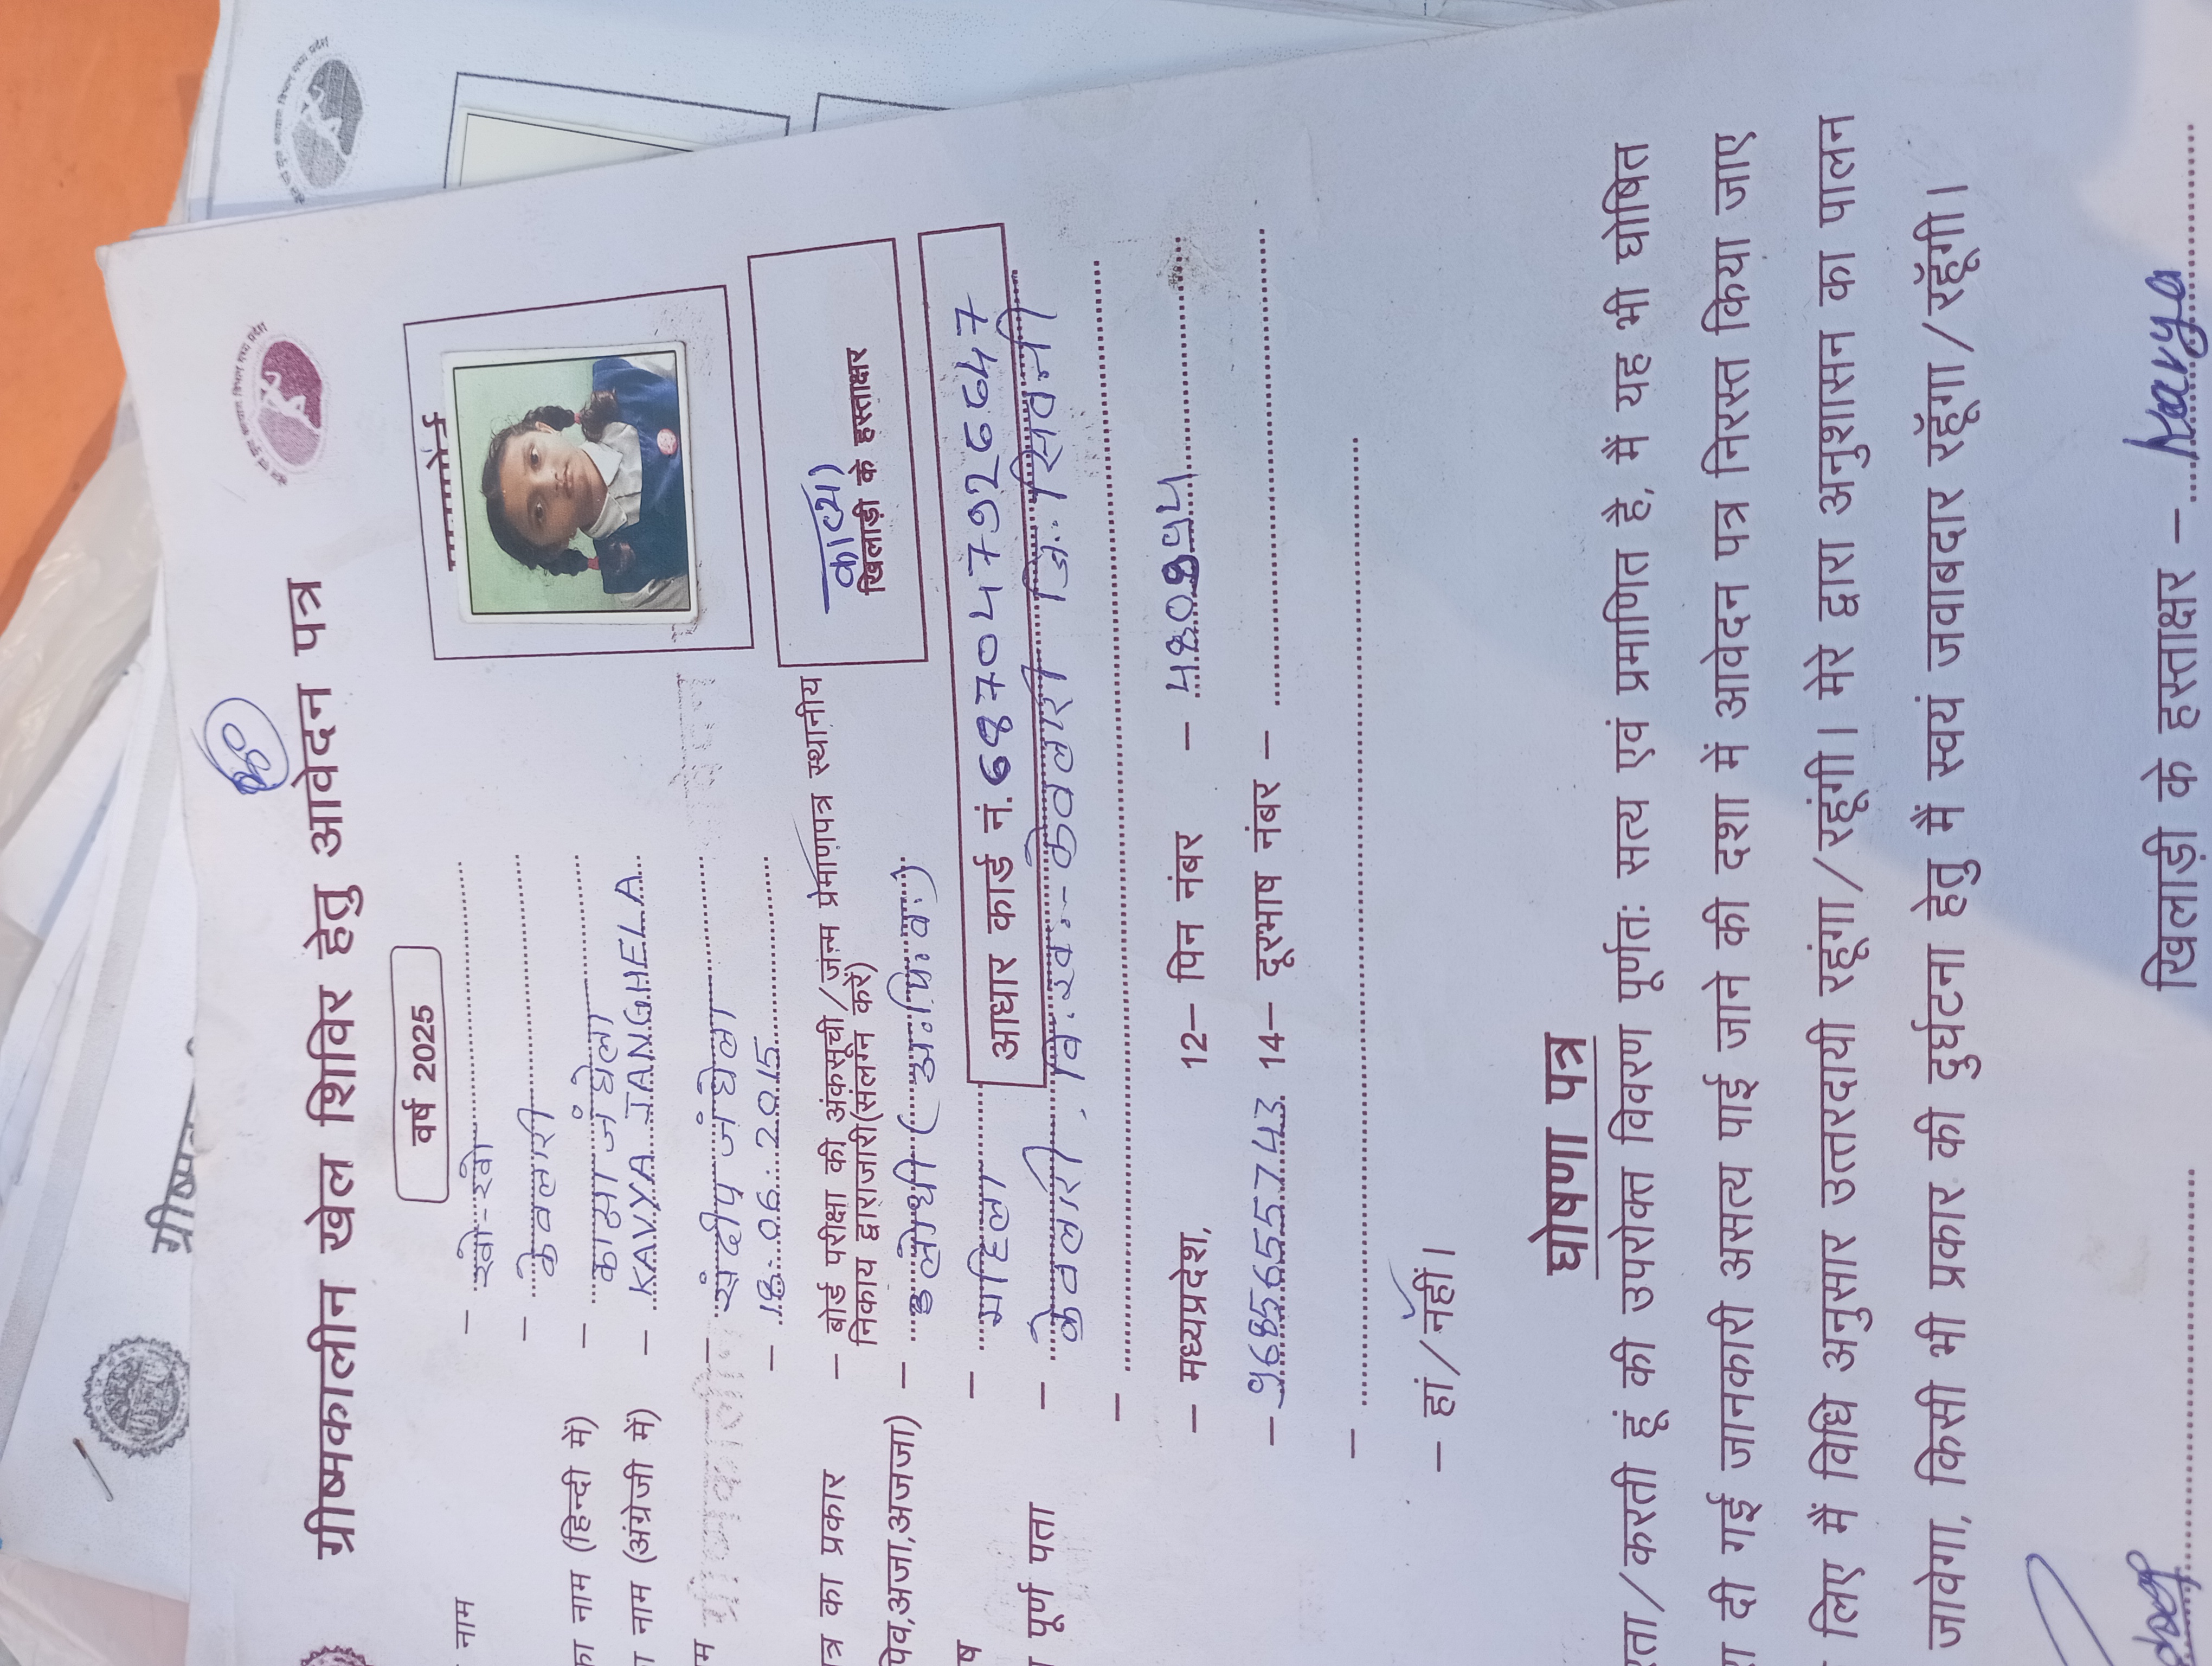 ग्रीष्मकालीन खेल शिविर हेतु आवेदन पत्र
वर्ष 2025
नाम – खो-खो
– केवलारी
का नाम (हिन्दी में) – काव्या जंघेला
नाम (अंग्रेजी में) – KAVYA JANGHELA
म – संदीप जंघेला
– 18.06.2015
त्र का प्रकार – बोर्ड परीक्षा की अंकसूची/जन्म प्रमाणपत्र स्थानीय
निकाय द्वारा जारी(संलग्न करें)
पिव,अजा,अजजा) –
काव्या
खिलाड़ी के हस्ताक्षर
– महिला
आधार कार्ड नं. 687047926947
पूर्ण पता – केवलारी, वि.ख.- केवलारी जि. सिवनी
– मध्यप्रदेश, 12– पिन नंबर –
– 9685655743 14– दूरभाष नंबर –
– हां/नहीं।
घोषणा पत्र
रता/करती हूं की उपरोक्त विवरण पूर्णतः सत्य एवं प्रमाणित है, मैं यह भी घोषित
दी गई जानकारी असत्य पाई जाने की दशा में आवेदन पत्र निरस्त किया जाए
लिए मैं विधि अनुसार उत्तरदायी रहूंगा/रहूंगी। मेरे द्वारा अनुशासन का पालन
जावेगा, किसी भी प्रकार की दुर्घटना हेतु मैं स्वयं जवाबदार रहूँगा/रहूँगी।
खिलाड़ी के हस्ताक्षर – Kavya